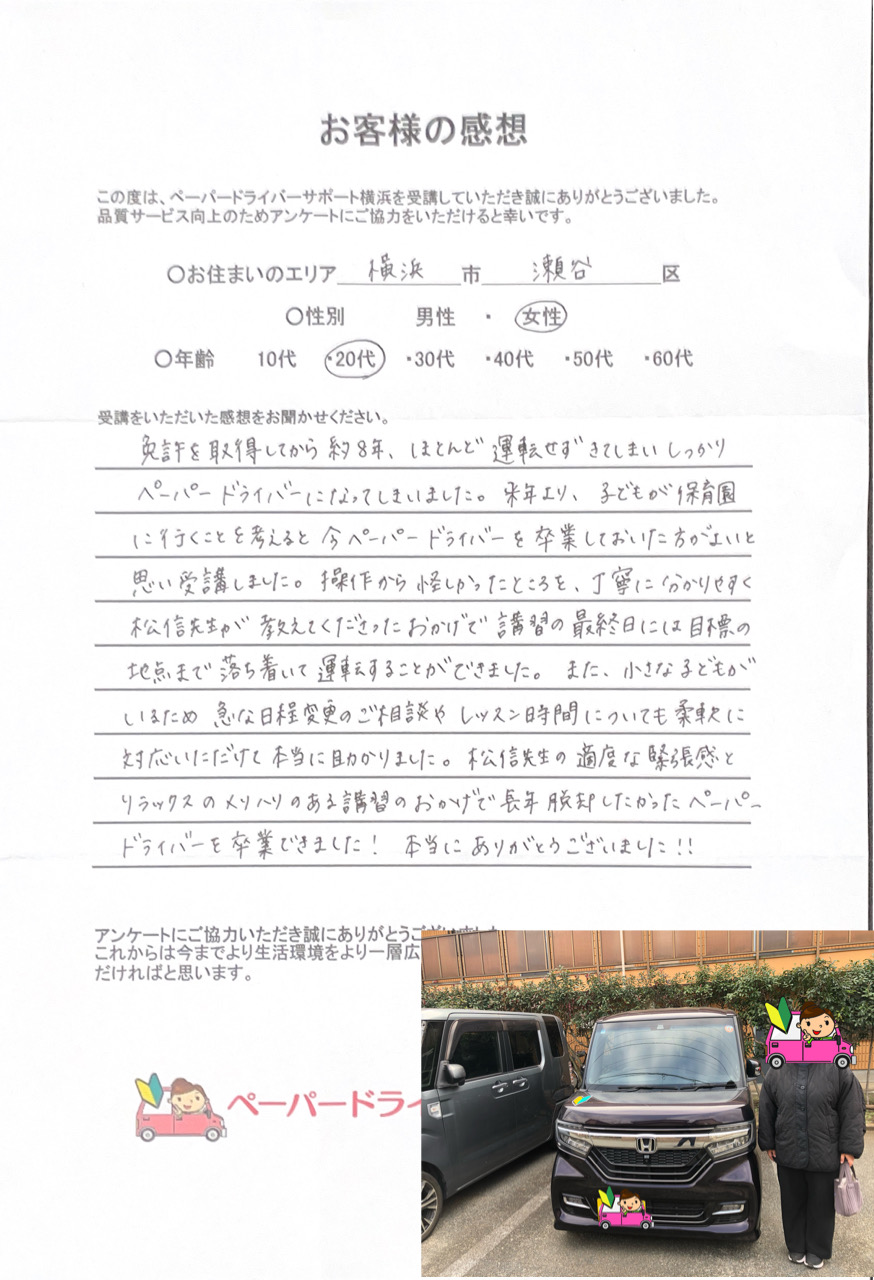 お客様の感想
この度は、ペーパードライバーサポート横浜を受講していただき誠にありがとうございました。
品質サービス向上のためアンケートにご協力をいただけると幸いです。
〇お住まいのエリア 横浜 市 瀬谷 区
〇性別 男性 ・ 女性
〇年齢 10代 ・20代 ・30代 ・40代 ・50代 ・60代
受講をいただいた感想をお聞かせください。
免許を取得してから約8年、ほとんど運転せずきてしまいしっかり
ペーパードライバーになってしまいました。来年より、子どもが保育園
に行くことを考えると今ペーパードライバーを卒業しておいた方がよいと
思い受講しました。操作から怪しかったところを、丁寧に分かりやすく
松信先生が教えてくださったおかげで講習の最終日には目標の
地点まで落ち着いて運転することができました。また、小さな子どもが
いるため急な日程変更のご相談やレッスン時間についても柔軟に
対応いただけて本当に助かりました。松信先生の適度な緊張感と
リラックスのメリハリのある講習のおかげで長年脱却したかったペーパー
ドライバーを卒業できました！本当にありがとうございました!!
アンケートにご協力いただき誠にありがとうございました
これからは今までより生活環境をより一層広
だければと思います。
ペーパードライ